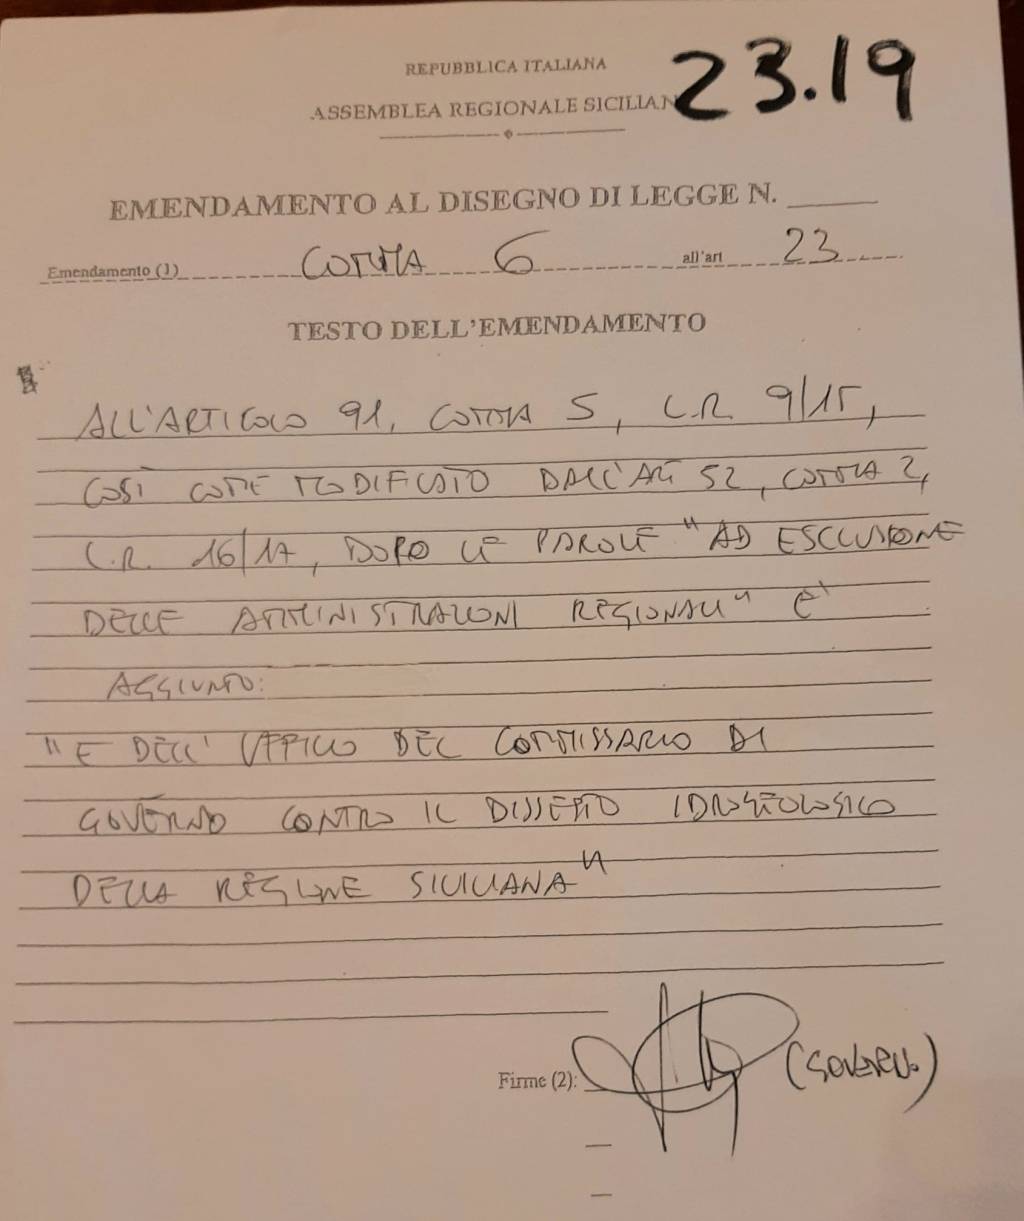 23.19
REPUBBLICA ITALIANA
ASSEMBLEA REGIONALE SICILIAN
EMENDAMENTO AL DISEGNO DI LEGGE N. ______
Emendamento (1) COMMA 6 all'art 23
TESTO DELL'EMENDAMENTO
ALL'ARTICOLO 91, COMMA 5, L.R. 9/15,
COSÌ COME MODIFICATO DALL'ART 52, COMMA 2,
L.R. 16/17, DOPO LE PAROLE "AD ESCLUSIONE
DELLE AMMINISTRAZIONI REGIONALI" E'
AGGIUNTO:
"E DELL'UFFICIO DEL COMMISSARIO DI
GOVERNO CONTRO IL DISSESTO IDROGEOLOGICO
DELLA REGIONE SICILIANA"
Firme (2): (GOVERNO)